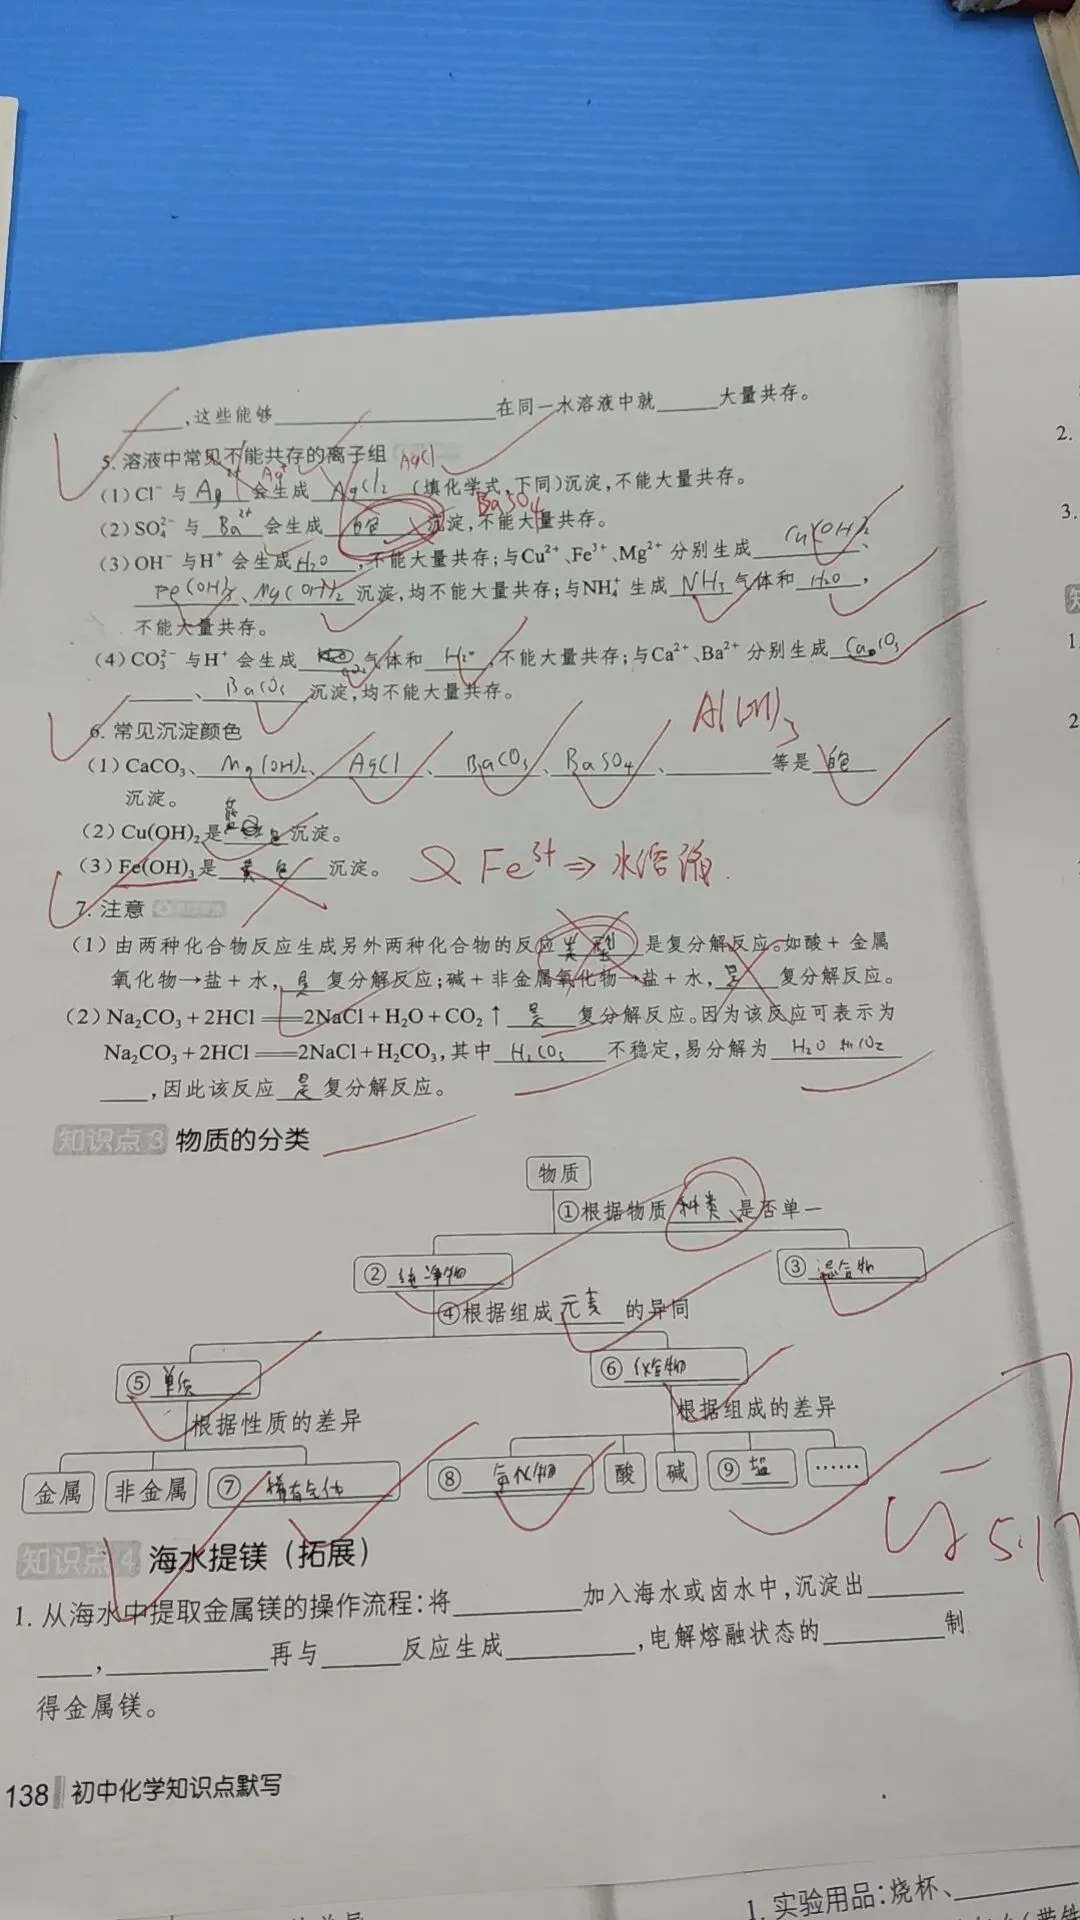 ______,这些能够______在同一水溶液中就______大量共存。
2.
5. 溶液中常见不能共存的离子组 AgCl
Ag⁺
(1)Cl⁻ 与 Ag²⁺ 会生成 AgCl₂ (填化学式,下同)沉淀,不能大量共存。
BaSO₄
(2)SO₄²⁻ 与 Ba²⁺ 会生成 白色 沉淀,不能大量共存。
3.
(3)OH⁻ 与H⁺ 会生成 H₂O ,不能大量共存;与Cu²⁺、Fe³⁺、Mg²⁺ 分别生成 Cu(OH)₂ 、
Fe(OH)₃ 、 Mg(OH)₂ 沉淀,均不能大量共存;与NH₄⁺ 生成 NH₃ 气体和 H₂O ,
不能大量共存。
1.
(4)CO₃²⁻ 与H⁺ 会生成 CO₂ 气体和 H₂O ,不能大量共存;与Ca²⁺、Ba²⁺ 分别生成 CaCO₃
______、 BaCO₃ 沉淀,均不能大量共存。
Al(OH)₃
2
6. 常见沉淀颜色
(1)CaCO₃、 Mg(OH)₂ 、 AgCl 、 BaCO₃ 、 BaSO₄ 、______等是 白色
沉淀。
(2)Cu(OH)₂是 色 沉淀。
(3)Fe(OH)₃是 黄色 沉淀。 Fe³⁺ ⇒ 水溶液.
7. 注意
(1)由两种化合物反应生成另外两种化合物的反应 类型 是复分解反应。如酸+金属
氧化物→盐+水, 是 复分解反应;碱+非金属氧化物→盐+水, 是 复分解反应。
(2)Na₂CO₃+2HCl══2NaCl+H₂O+CO₂↑ 是 复分解反应。因为该反应可表示为
Na₂CO₃+2HCl══2NaCl+H₂CO₃,其中 H₂CO₃ 不稳定,易分解为 H₂O 和CO₂
______,因此该反应 是 复分解反应。
知识点3 物质的分类
物质
①根据物质 种类 是否单一
② 纯净物 ③ 混合物
④根据组成 元素 的异同
⑤ 单质 ⑥ 化合物
根据性质的差异 根据组成的差异
金属 非金属 ⑦ 稀有气体 ⑧ 氧化物 酸 碱 ⑨ 盐 ……
5.17
知识点4 海水提镁(拓展)
1. 从海水中提取金属镁的操作流程:将______加入海水或卤水中,沉淀出______
______,______再与______反应生成______,电解熔融状态的______制
得金属镁。
138 初中化学知识点默写
1. 实验用品:烧杯、______